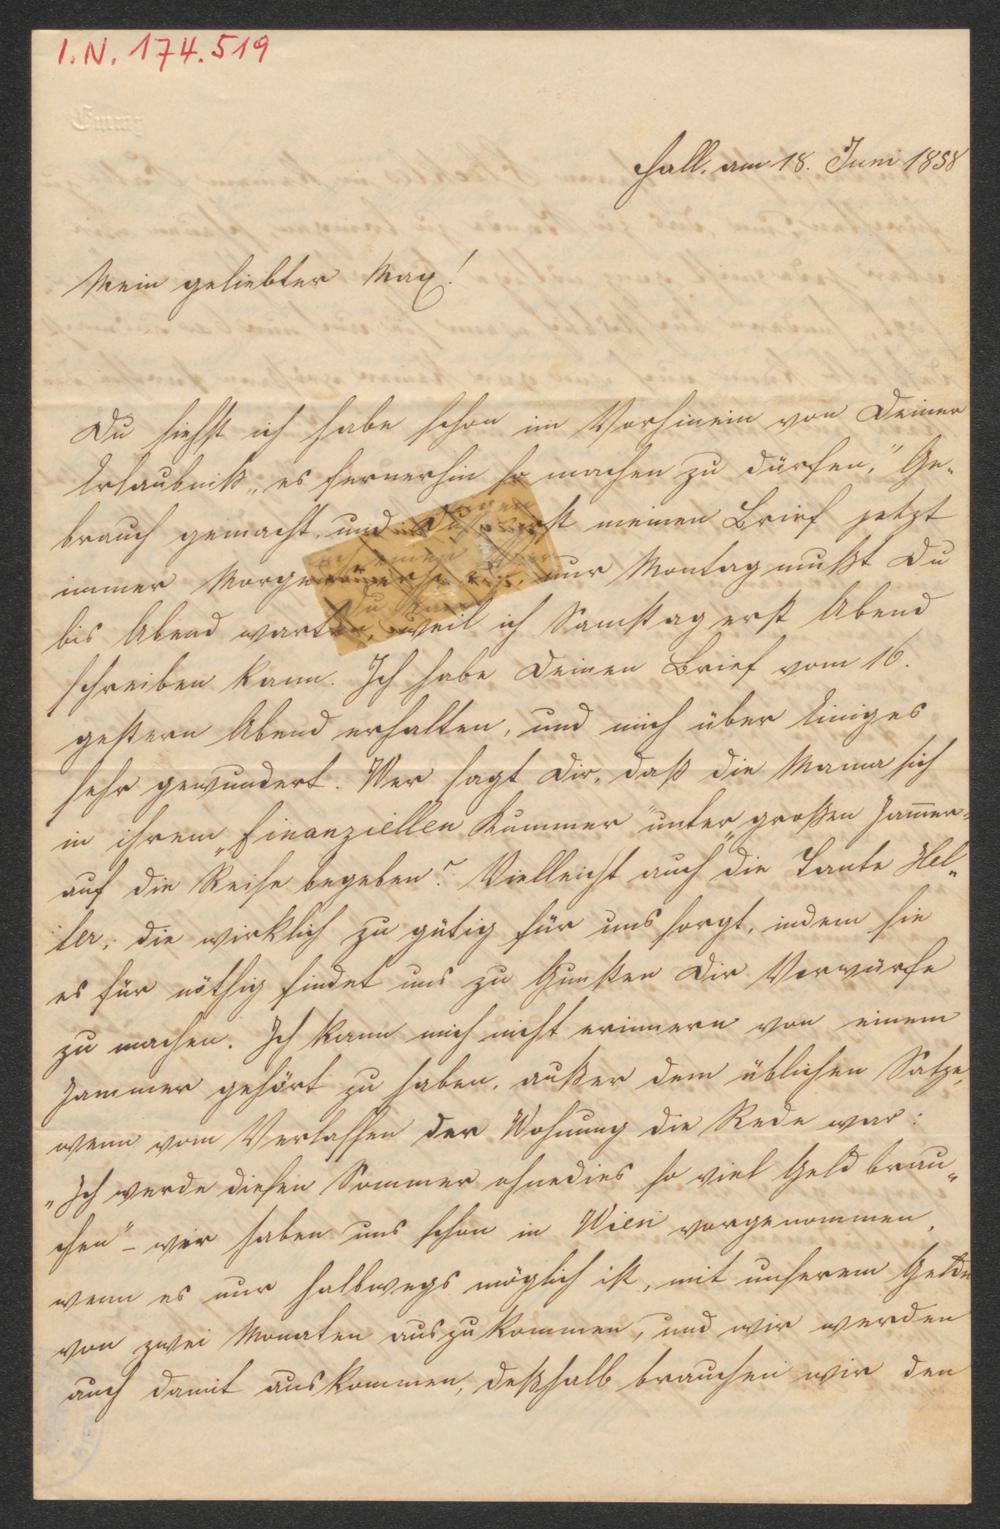 I.N. 174.519
Emmy
Hall, am 18. Juni 1858
Mein geliebter Max!
Du siehst ich habe schon im Vorhinein von Deiner
Erlaubniß „es fernerhin so machen zu dürfen," Ge-
brauch gemacht, und Du meinen Brief jetzt
immer Morgens nur Montag mußt Du
bis Abend warten, weil ich Samstag erst Abend
schreiben kann. Ich habe Deinen Brief vom 16.
gestern Abend erhalten, und mich über Einiges
sehr gewundert. Wer sagt Dir, daß die Mama sich
in ihrem „finanziellen Kummer" unter „großen Jam̄er"
auf die Reise begeben? Vielleicht auch die Tante Hel-
ler, die wirklich zu gütig für uns sorgt, indem sie
es für nöthig findet uns zu Gunsten Dir Vorwürfe
zu machen. Ich kann mich nicht erinnern von einem
Jammer gehört zu haben, außer dem üblichen Satze,
wenn vom Verlassen der Wohnung die Rede war:
„Ich werde diesen Sommer ohnedies so viel Geld brau-
chen" – wir haben uns schon in Wien vorgenommen,
wenn es nur halbwegs möglich ist, mit unserem Gelde
von zwei Monaten auszukommen, und wir werden
auch damit auskommen, deßhalb brauchen wir den